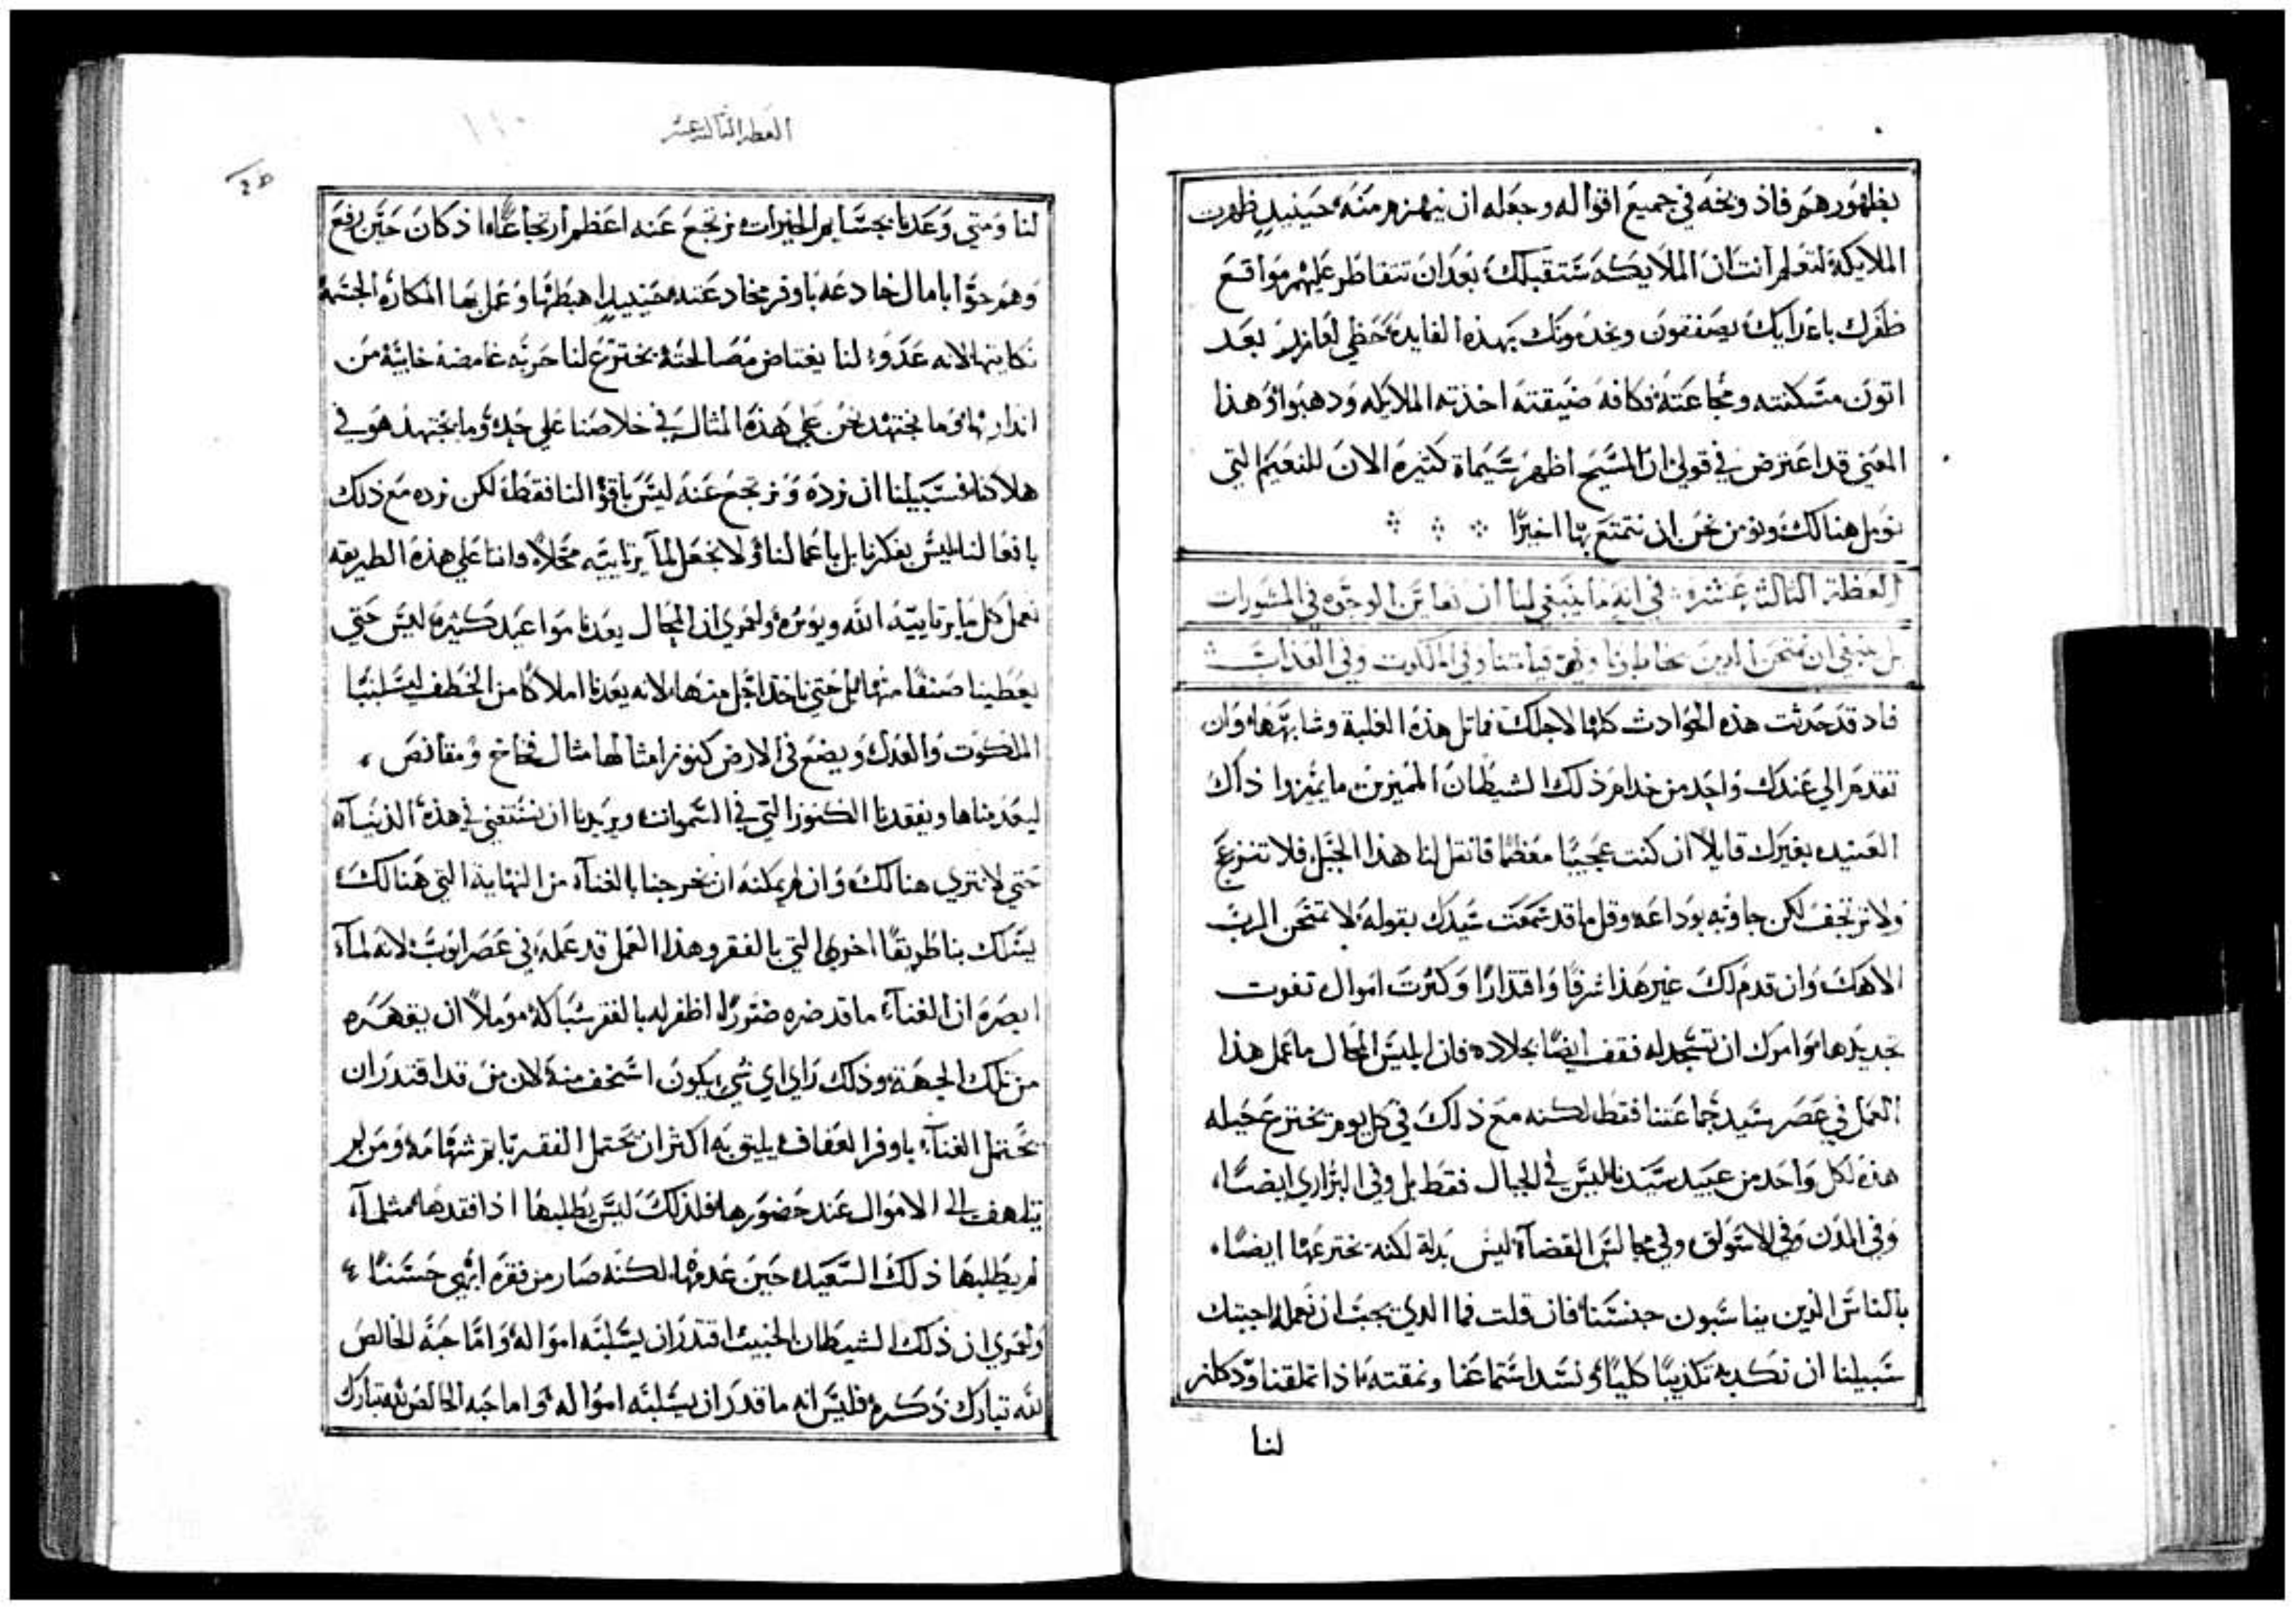 بظهورهم فاذ وبخه في جميع اقواله وجعله ان ينهزم منه حينيدٍ ظهرت
الملايكة لتعلم انت ان الملايكه ستقبلك بعد ان تتقاطر عليهم مواقع
ظفرك باعدايك يصفقون ويخدمونك بهذه الفايدة حظي لعازر بعد
اتون مسكنته ومجاعته وكافة ضيقته اخذته الملايكه ودهبوا وهذا
المعني قد اعترض في قولي ان المسيح اظهر سيماة كثيرة الان للنعيم التي
نوبل هنالك ونومن نحن ان نتمتع بها اخيرًا
العظة الثالثة عشرة في انه ما ينبغي لنا ان نعاين الوجوه في المشورات
بل ينبغي ان نمتحن الدين يخاطبونا وفي قيامتنا وفي الملكوت وفي العذاب
فاد قد حدثت هذه الحوادث كلها لاجلك فماثل هذه الغلبة وشابهها وان
تقدم الي عندك واحد من خدام ذلك الشيطان المميزين ما يميزوا ذاك
العنيد بغيرك قايلاً ان كنت عجيبًا معظمًا فانقل لنا هذا الجبل فلا تنزعج
ولا ترتجف لكن جاوبه بوداعه وقل ما قد سمعت سيدك بقوله لا تمتحن الرب
الاهك وان قدم لك غير هذا شرفًا واقتدارًا وكثرت اموال تفوت
تحديدها وامرك ان تسجد له فقف ايضًا بجلاده فان ابليس المحال ما عمل هذا
العمل في عصر سيد جماعتنا فقط لكنه مع ذلك في كل يوم يخترع حيله
هذه لكل واحد من عبيد سيدنا ليس في الجبال فقط بل وفي البراري ايضًا،
وفي المدن وفي الاسواق وفي مجالس القضاة ليس بدلة لكنه يخترعها ايضًا،
بالناس الدين يناسبون جنسنا فان قلت فما الدي يجب ان نعمله اجبتك
سبيلنا ان نكدبه تكذيبًا كليًا ونسد اسماعنا ونمقته اذا تملقنا ودكاته
لنا
العظه الثالثه عشر
١١٠
لنا ومتي وعدنا بجسايم الخيرات نرتجع عنه اعظم ارتجاعًا اذ كان حين رفع
وهم حوّا بامال خادعه باوفر مخادعنه حينيدٍ اهبطها وعمل بها المكاره الجسمه
نكايتها لانه عدوّ لنا يغتاض مصالحته يخترع لنا حربه غامضه خايبة من
اندار بها وما نجتهد نحن علي هذه المثال في خلاصنا علي حده وما يجتهد هو في
هلاكنا فسبيلنا ان نرده ونرتجع عنه ليس باقوالنا فقط لكن نرده مع ذلك
بافعالنا ليس بفكرنا بل باعمالنا ولا نجعل لما يرتاييه محلاً فاننا علي هذه الطريقه
نعمل كل ما يرتاييه الله ويوثره ولعمري ان المحال يعدنا مواعيد كثيرة ليس حتي
يعطينا صنفًا منها بل حتي ناخد اجل منها لانه يعدنا املاكًا من الخطف ليسلبنا
الملكوت والعدل ويضع في الارض كنوز امثالها مثال فخاخ ومقانص
ليعدمناها ويفقدنا الكنوز التي في السموات ويريدنا ان نستغني في هذه الدنياه
حتي لا نتري هنالك وان لم يمكنه ان يخرجنا بالغناه من النهاية التي هنالك
يسلك بنا طريقًا اخري التي بالفقر وهذا العمل قد عمله في عصر ايوب لانه لماه
ابصره ان الغناء ما قد ضره ضرورًا ظفر له بالفقر شباكه موملاً ان يقهره
من تلك الجهة وذلك راي اي شي يكون اسخف منه لان من قد اقتدر ان
يحتمل الغناء باوفر العفاف يليق به اكثر ان يحتمل الفقر باتم شهامه ومن لم
يتلهف الي الاموال عند حضورها فلذلك ليس يطلبها اذا فقدها مثلماه
لم يطلبها ذلك السعيد حين عدمها لكنه صار من فقره ابهي حسنًا
ولعمري ان ذلك الشيطان الخبيث اقتدر ان يسلبه امواله واما حبه الخالص
لله تبارك ذكره فليس انه ما قدر ان يسلبه امواله واما حبه الخالص لله تبارك